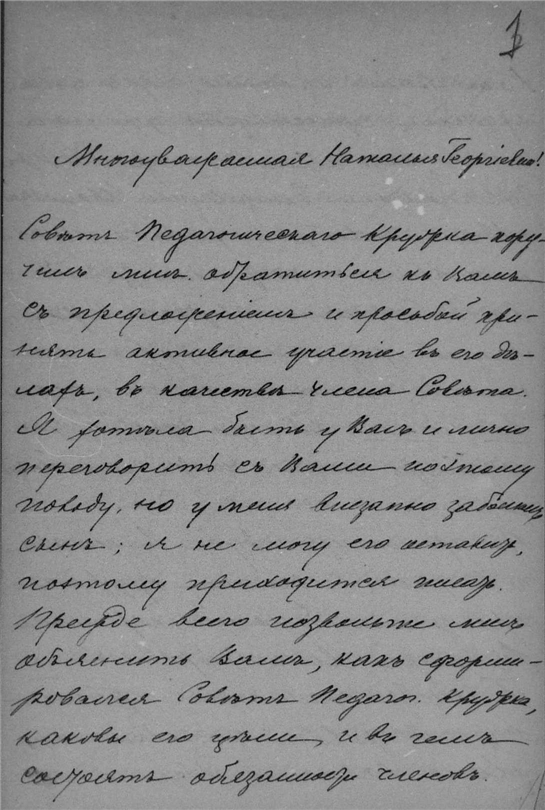 1
Многоуважаемая Наталья Георгіевна!
Совѣтъ Педагогическаго Кружка пору-
чилъ мнѣ обратиться къ Вамъ
съ предложеніемъ и просьбой при-
нять активное участіе въ его дѣ-
лахъ, въ качествѣ члена Совѣта.
Я хотѣла быть у Васъ и лично
переговорить съ Вами по этому
поводу, но у меня внезапно заболѣлъ
сынъ; я не могу его оставить,
поэтому приходится писать.
Прежде всего позвольте мнѣ
объяснить Вамъ, какъ сформи-
ровался Совѣтъ Педагог. Кружка,
каковы его цѣли, и въ чемъ
состоятъ обязанности членовъ.